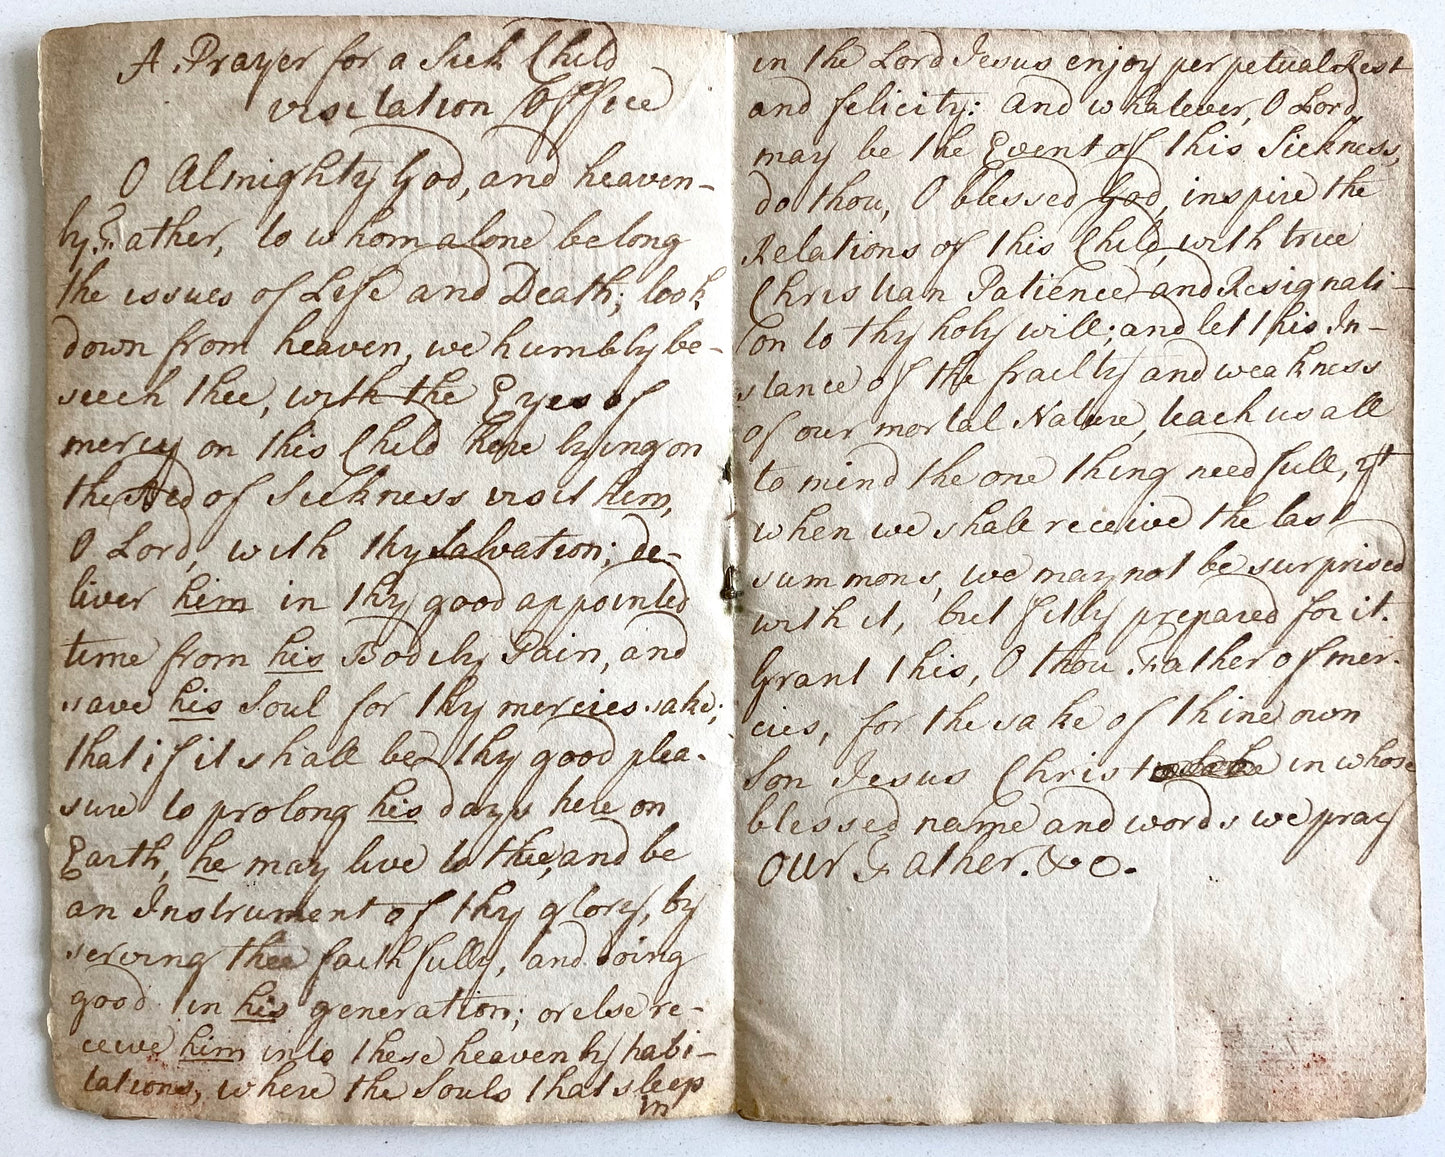 A Prayer for a Sick Child
visitation Office
O Almighty God, and heaven-
ly Father, to whom alone belong
the issues of Life and Death; look
down from heaven, we humbly be-
seech thee, with the Eyes of
mercy on this Child here lying on
the Bed of Sickness visit him,
O Lord, with thy salvation; de-
liver him in thy good appointed
time from his Bodily Pain, and
save his Soul for thy mercies sake;
that if it shall be thy good plea-
sure to prolong his days here on
Earth, he may live to thee, and be
an Instrument of thy glory, by
serving thee faithfully, and doing
good in his generation; or else re-
ceive him into these heavenly habi-
tations, where the Souls that sleep
in
in the Lord Jesus enjoy perpetual Rest
and felicity: And whatever, O Lord,
may be the Event of this Sickness,
do thou, O blessed God, inspire the
Relations of this Child, with true
Christian Patience and Resignati-
on to thy holy will; and let this In-
stance of the frailty and weakness
of our mortal Nature, teach us all
to mind the one thing needfull, yt
when we shall receive the last
summons, we may not be surprised
with it, but fitly prepared for it.
Grant this, O thou Father of mer-
cies, for the sake of thine own
Son Jesus Christ in whose
blessed name and words we pray
Our Father. &c.